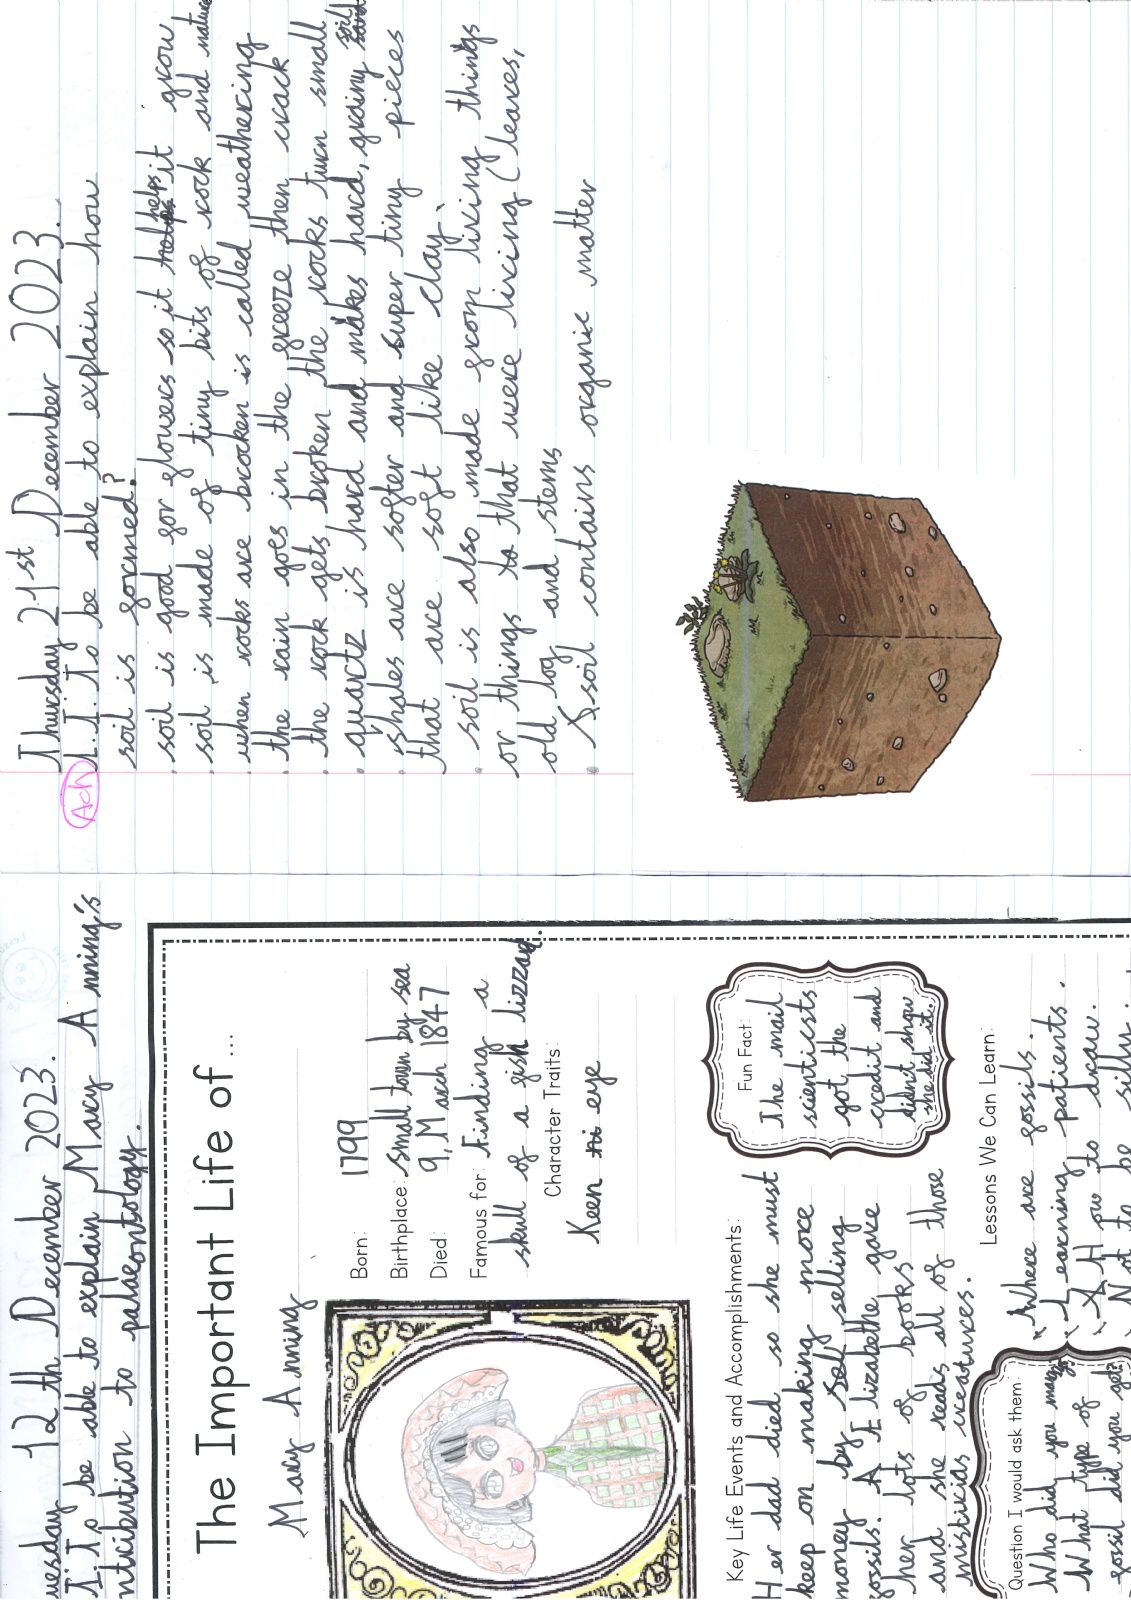 uesday 12th December 2023.
I.T.o be able to explain Mary Anning's
ntribution to palaeontology.
The Important Life of ...
Mary Anning
Born: 1799
Birthplace: small town by sea
Died: 9, March 1847
Famous for: finding a
skull of a fish lizzard.
Character Traits:
Keen eye
Key Life Events and Accomplishments:
Her dad died so she must
keep on making more
money by self selling
fossils. A Elizabethe gave
her lots of books
and she reads all of those
misticias creatures.
Fun Fact:
The mail
scienticsts
got the
credit and
didn't show
she did it.
Lessons We Can Learn:
Where are fossils.
Learning patients.
How to draw.
Not to be silly.
Question I would ask them:
Who did you marry?
What type of
fossil did you get?
Ach
Thursday 21st December 2023.
L.I.To be able to explain how
soil is formed?
soil is good for flowers so it helps it grow
soil is made of tiny bits of rock and nature
when rocks are brocken is called weathering
the rain goes in the freeze then crack
the rock gets broken the rocks turn small
quartz is hard and makes hard, grainy soil
Shales are softer and super tiny pieces
that are soft like clay
soil is also made from living things
or things to that were living (leaves,
old log and stems
soil contains organic matter